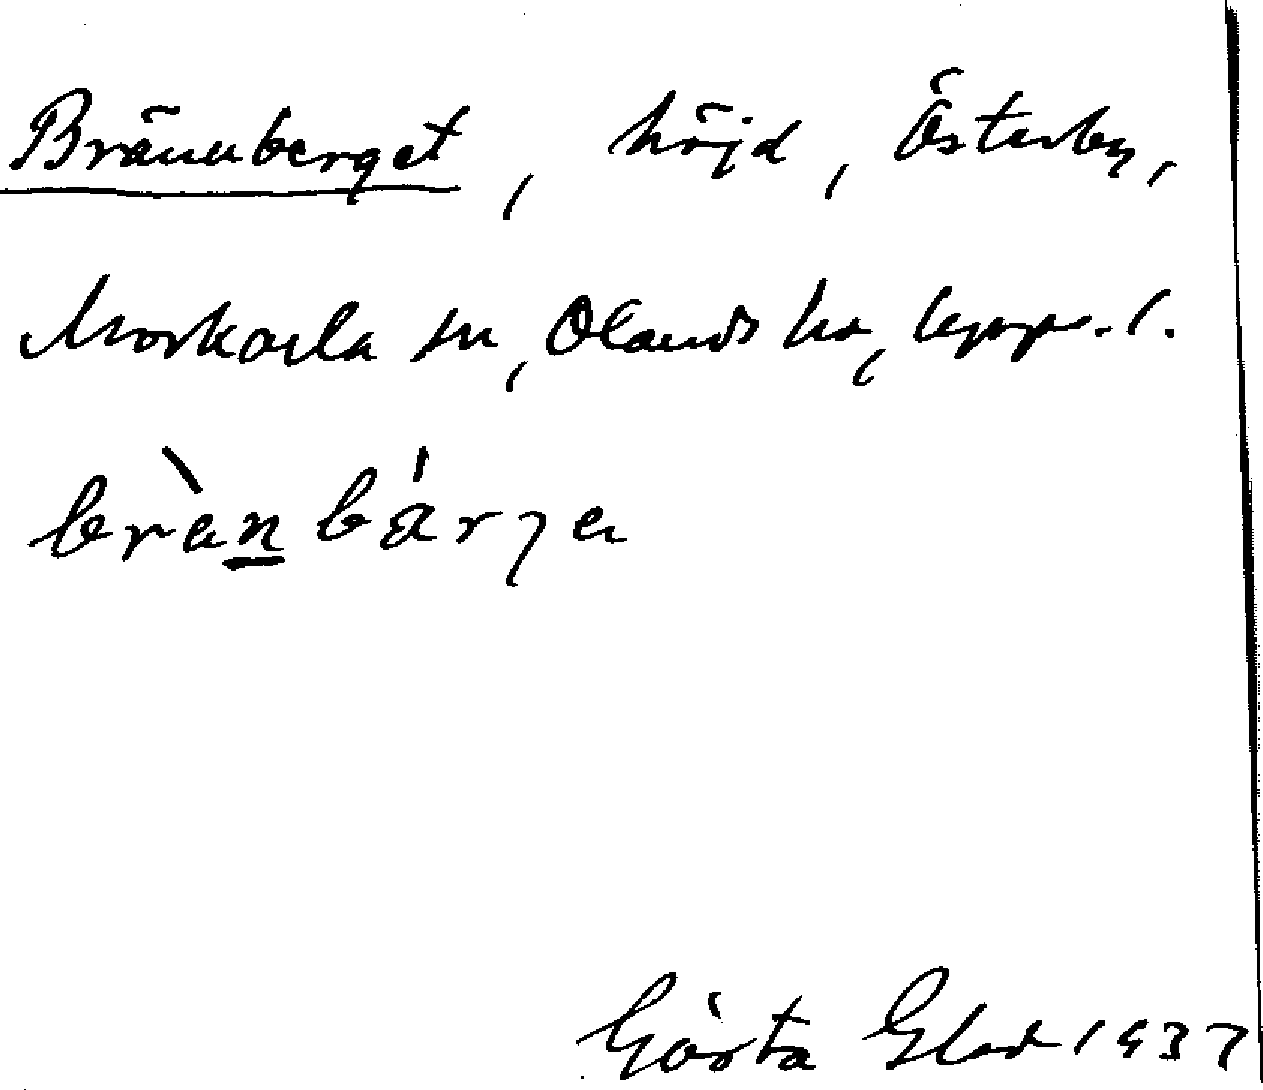 Brännberget, höjd, Österby,
Morkarla sn, Olands hd, Upps. l.
brànbárjɛ
Gösta Elad 1937